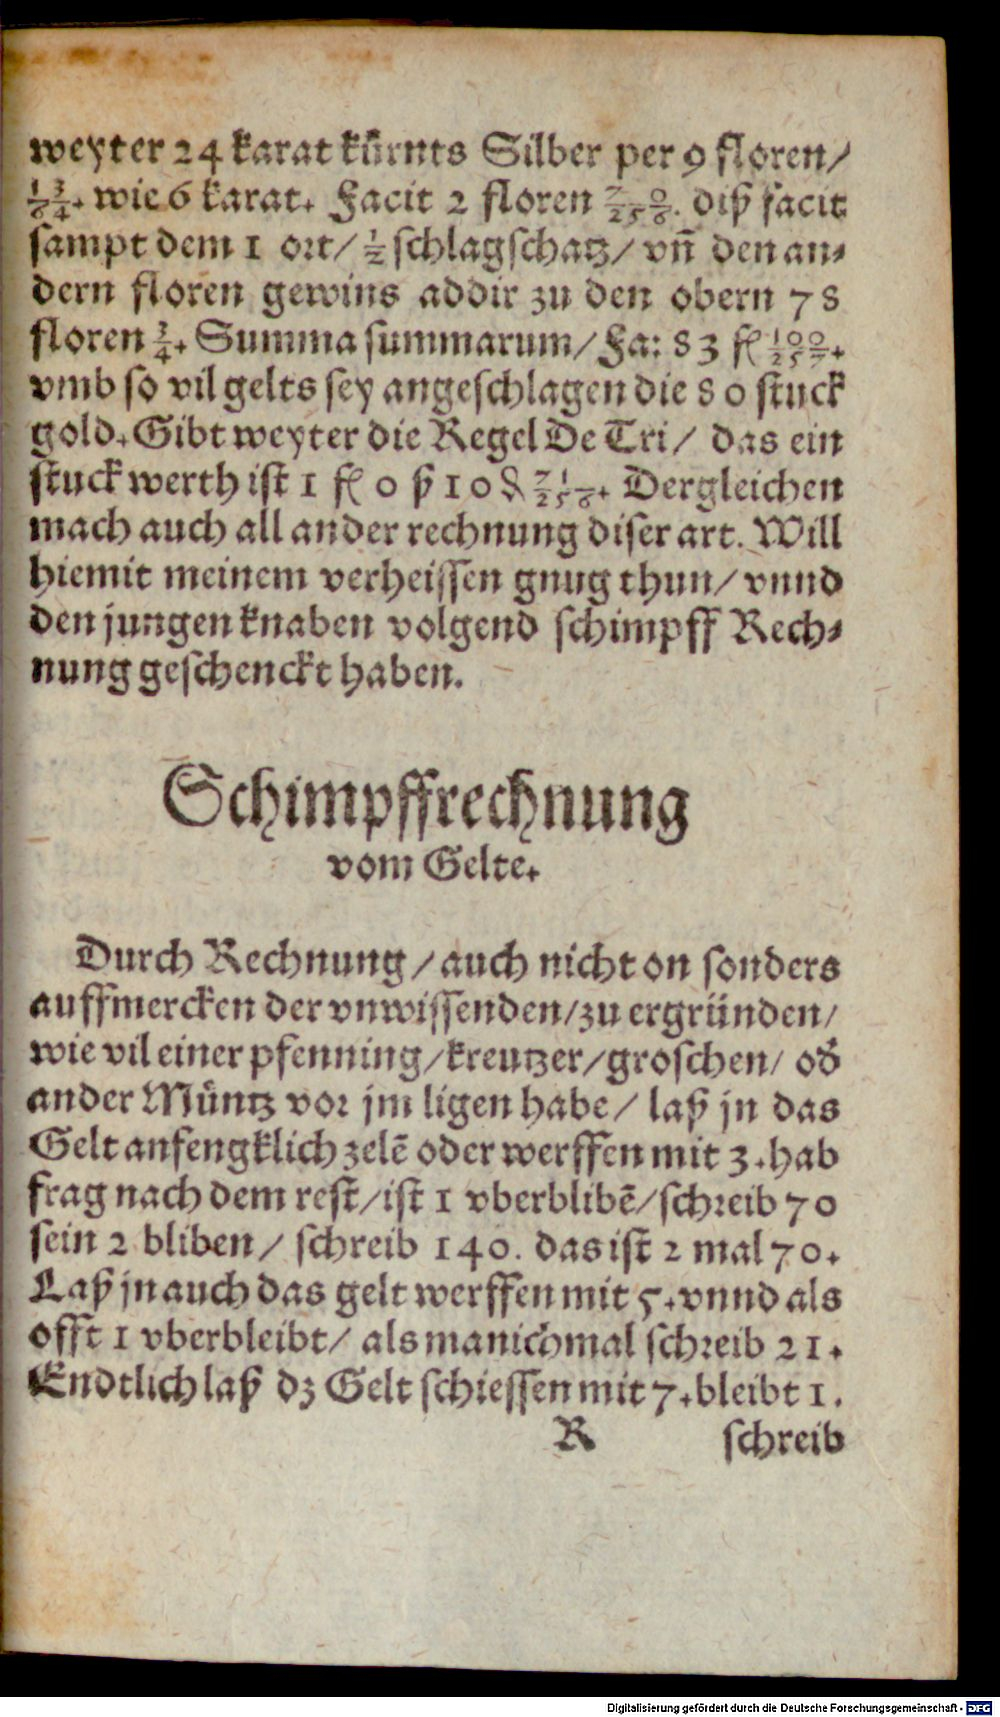 weyter 24 karat kürnts Silber per 9 floren/
1/6 3/4. wie 6 karat. Facit 2 floren 70/256. diß facit
sampt dem 1 ort/ 1/2 schlagschatz/ vñ den an⸗
dern floren gewins addir zu den obern 78
floren 3/4. Summa summarum/ Fa: 83 fl 100/257.
vmb so vil gelts sey angeschlagen die 80 stuck
gold. Gibt weyter die Regel De Tri/ das ein
stuck werth ist 1 fl 0 ß 10 ₰ 71/256. Dergleichen
mach auch all ander rechnung diser art. Will
hiemit meinem verheissen gnug thun/ vnnd
den jungen knaben volgend schimpff Rech⸗
nung geschenckt haben.
Schimpffrechnung
vom Gelte.
Durch Rechnung/ auch nicht on sonders
auffmercken der vnwissenden/ zu ergründen/
wie vil einer pfenning/ kreutzer/ groschen/ od̕
ander Müntz vor jm ligen habe/ laß jn das
Gelt anfengklich zelē oder werffen mit 3. hab
frag nach dem rest/ ist 1 vberblibē/ schreib 70
sein 2 bliben/ schreib 140. das ist 2 mal 70.
Laß jn auch das gelt werffen mit 5. vnnd als
offt 1 vberbleibt/ als manichmal schreib 21.
Endtlich laß dz Gelt schiessen mit 7. bleibt 1.
R schreib
Digitalisierung gefördert durch die Deutsche Forschungsgemeinschaft - DFG